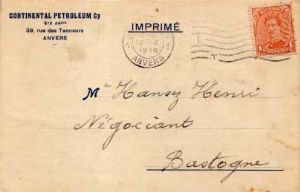 CONTINENTAL PETROLEUM Cy
Sté Ame
39, rue des Tanneurs
ANVERS
IMPRIMÉ
ANVERS
Mr Hansez Henri
Négociant
Bastogne